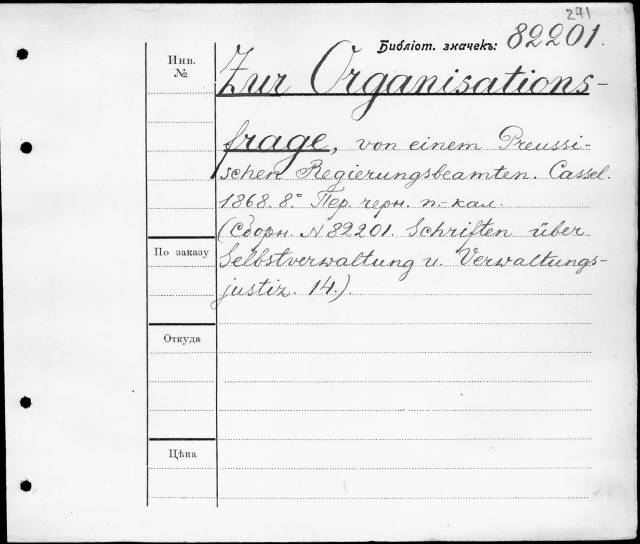 271
Библіот. значекъ: 82201.
Инв.
№
Zur Organisations-
frage, von einem Preussi-
schen Regierungsbeamten. Cassel.
1868. 8.° Пер. черн. п.-кал.
(Сборн. N 82201. Schriften über
По заказу
Selbstverwaltung u. Verwaltungs-
justiz. 14.).
Откуда
Цѣна